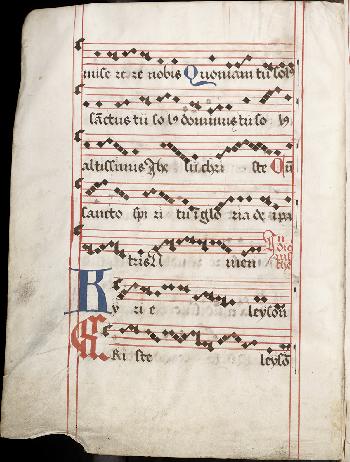 mise re re nobis Quoniam tu sol9
sāctus tu so l9 dominus tu so l9
altissimus Jhu chri ste Cū
sancto spi ri tu ī glo ria dei pa
tris A men
Ky ri e leyson
Xri ste leysō